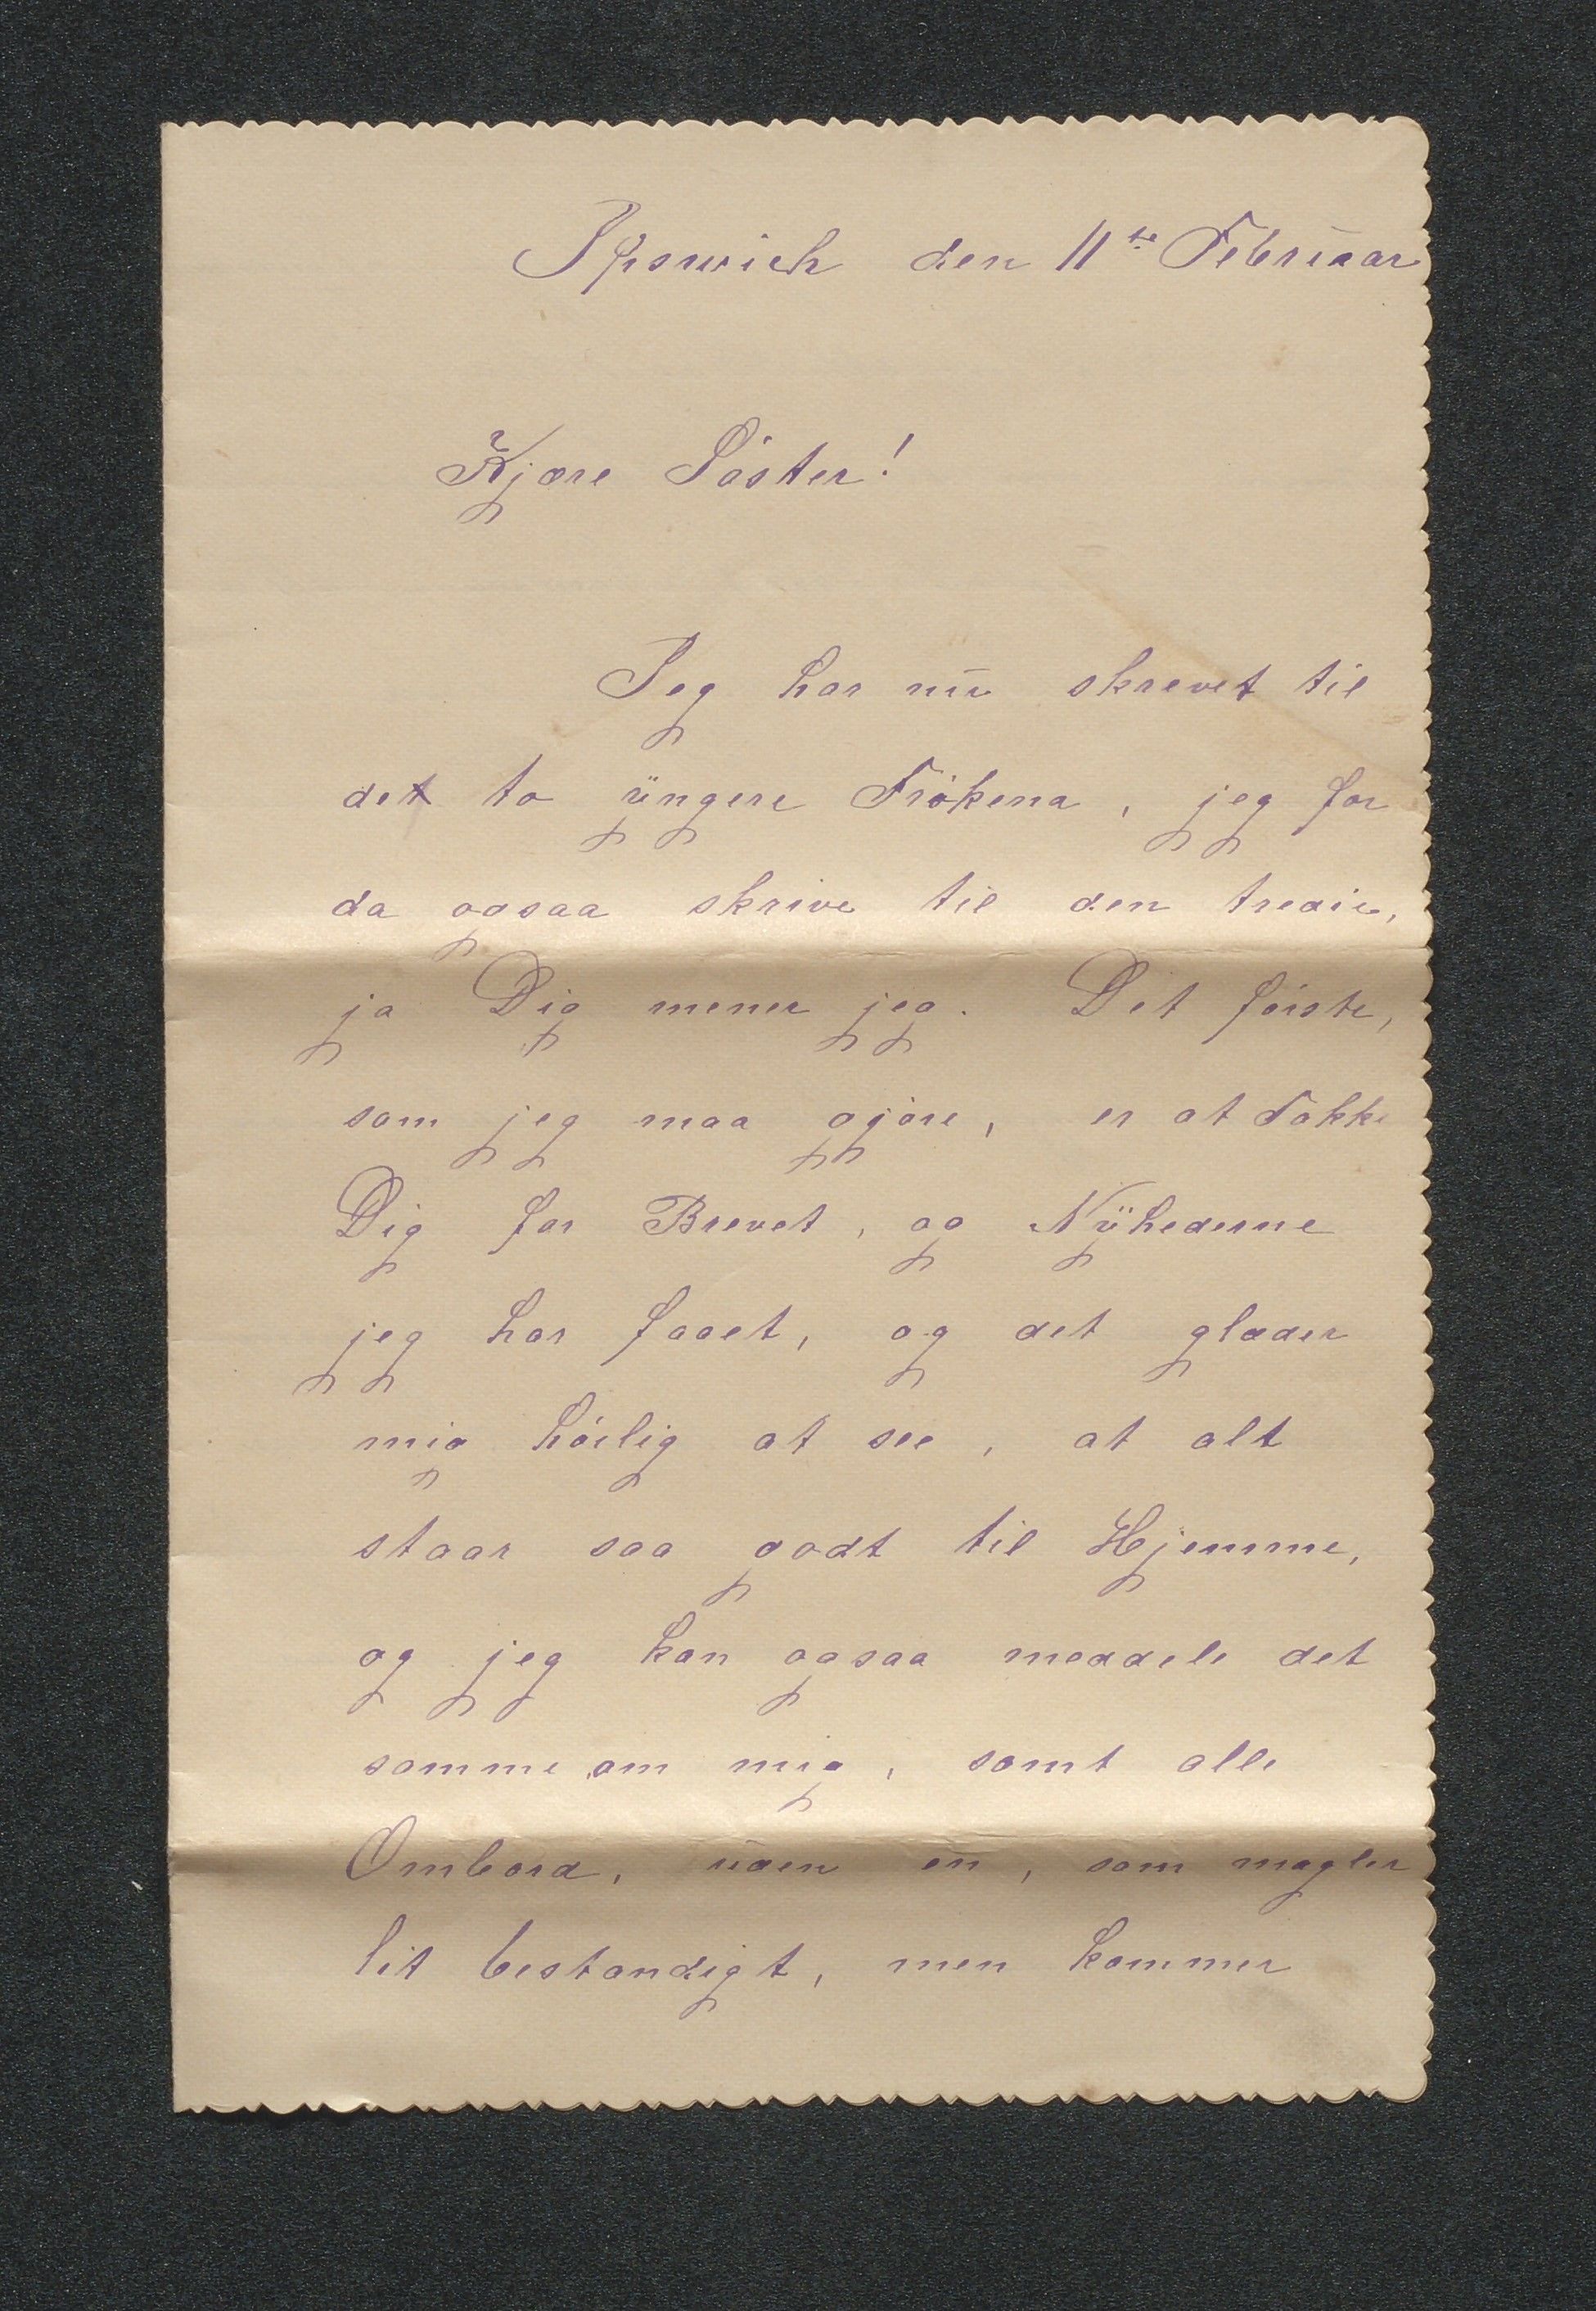 Ipswich den 11te Februar
Kjære Söster!
Jeg har nu skrevet til
det to yngere Frökena, jeg for
da ogsaa skrive til den tredie,
ja Dig mener jeg. Det förste,
som jeg maa gjöre, er at Takke
Dig for Brevet, og Nyhederne
jeg har faaet, og det glæder
mig höilig at see, at alt
staar saa godt til Hjemme,
og jeg kan ogsaa meddele det
samme om mig, samt alle
Ombord, uden en, som magler
lit bestandigt, men kommer